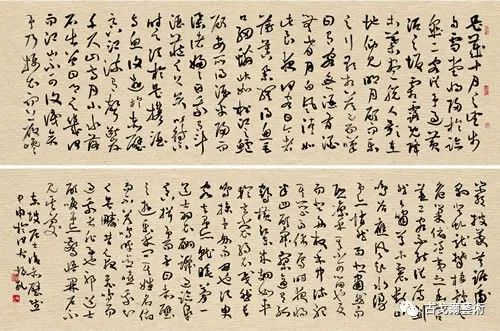 是歲十月之望步
自雪堂將歸於臨
皋二客從予過黃
泥之坂霜露既降
木葉盡脫人影在
地仰見明月顧而樂
之行歌相答已而嘆
曰有客無酒有酒
無肴月白風清如
此良夜何客曰今者
薄暮舉網得魚巨
口細鱗狀如松江之鱸
顧安所得酒乎歸而
謀諸婦婦曰我有斗
酒藏之久矣以待子不
時之需於是攜酒
與魚復遊於赤壁
之下江流有聲斷岸
千尺山高月小水落
石出曾日月之幾何
而江山不可復識矣
予乃攝衣而上履巉
巖披蒙茸踞虎
豹登虬龍攀棲鶻
之危巢俯馮夷之幽宮
蓋二客不能從焉劃
然長嘯草木震動山
鳴谷應風起水湧
予亦悄然而悲肅然而
恐凜乎其不可留也反
而登舟放乎中流聽
其所止而休焉時夜將
半四顧寂寥適有孤
鶴橫江東來翅如車
輪玄裳縞衣戛然長
鳴掠予舟而西也須臾
客去予亦就睡夢一
道士羽衣蹁躚過臨皋
之下揖予而言曰赤壁
之遊樂乎問其姓名俯
而不答嗚呼噫嘻我知
之矣疇昔之夜飛鳴而
過我者非子也耶道士
顧笑予亦驚寤開戶
視之不見其處
古戈爾藝術